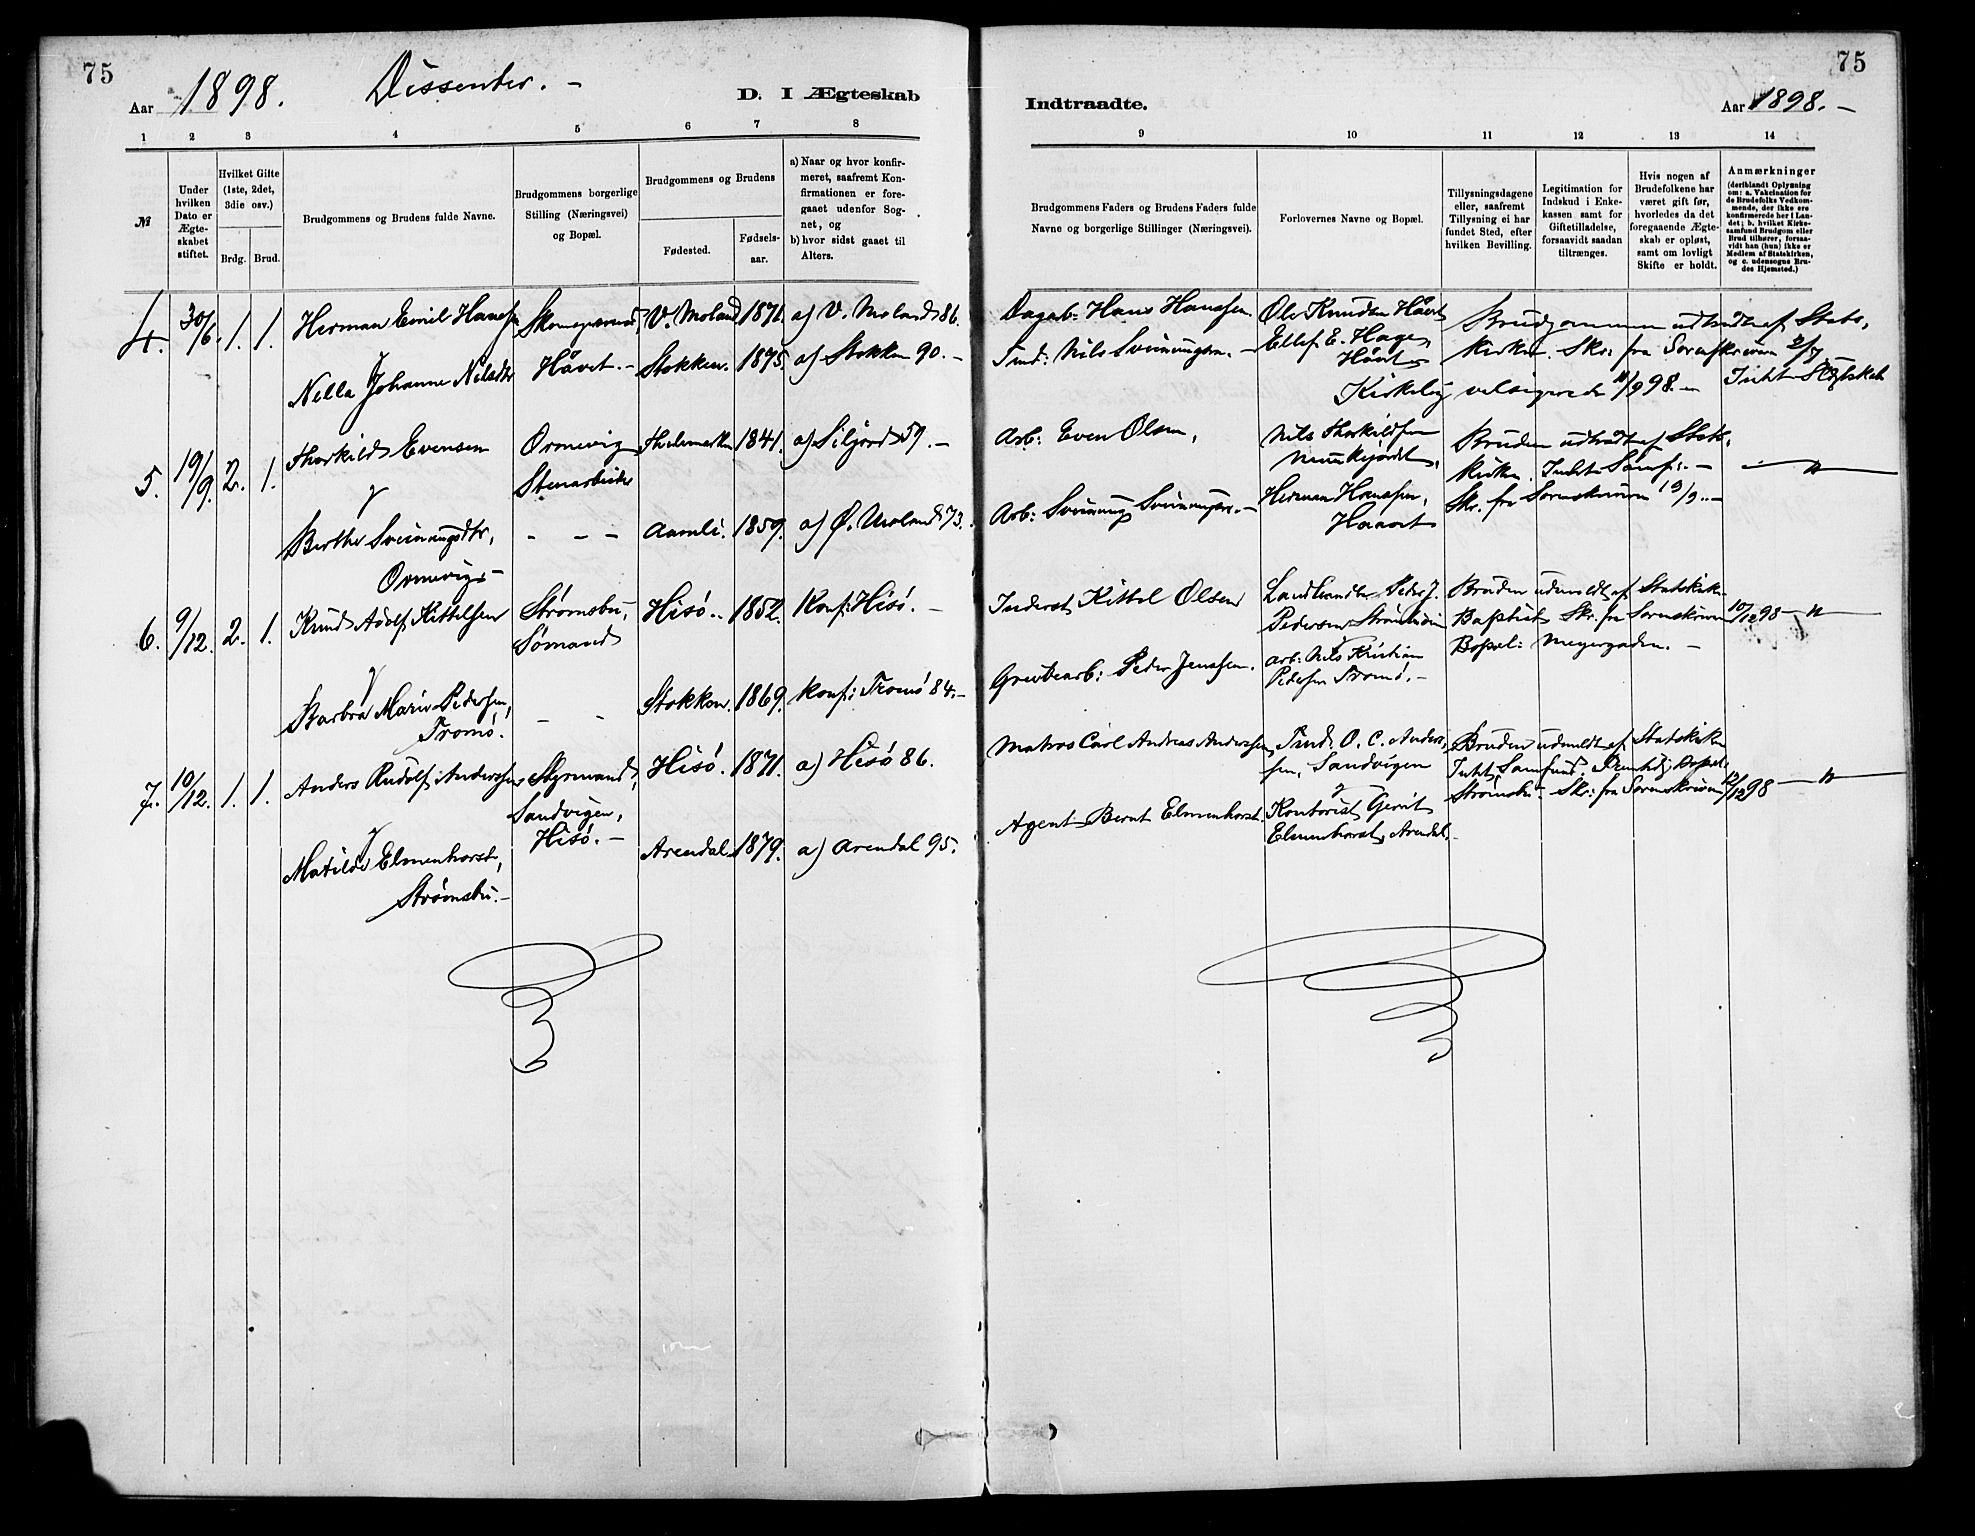 75
Aar 1898. Dissenter. –
D. I Ægteskab
1 2 3 4 5 6 7 8
№
Under hvilken Dato er Ægte-skabet stiftet.
Hvilket Gifte (1ste, 2det, 3die osv.)
Brdg. Brud.
Brudgommens og Brudens fulde Navne.
Brudgommens borgerlige Stilling (Næringsvei) og Bopæl.
Brudgommens og Brudens
Fødested.
Fødsels-aar.
a) Naar og hvor konfir-
meret, saafremt Kon-
firmationen er fore-
gaaet udenfor Sog-
net, og
b) hvor sidst gaaet til
Alters.
4. 30/6. 1. 1. Herman Emil Hansen
Håvet. –
V. Moland 1871. a) V. Moland 86.
Nella Johanne Nilsdtr
Stokken. 1875. a) Stokken 90. –
5. 19/9. 2. 1. Thorkild Evensen
Ormevig
Stenarbeider
Thelemarken 1841. a) Siljord 59. –
Berthe Sveinungsdtr,
Ormevig –
– – – Aamli. 1859. a) Ø. Moland 73.
6. 9/12. 2. 1. Knud Adolf Kittelsen
Strømsbu,
Sømand
Hisø. 1852. Konf: Hisø. –
Barbra Marie Pedersen,
Tromø.
– –
Stokken. 1869. Konf: Tromø 84. –
7. 10/12. 1. 1. Anders Rudolf Anderssen
Styrmand,
Sandvigen,
Hisø. –
Hisø. 1871. a) Hisø 86.
Matilde Elmenhorst,
Strømsbu. –
Arendal 1879. a) Arendal 95.
75
Indtraadte.
Aar 1898. –
9 10 11 12 13 14
Brudgommens Faders og Brudens Faders fulde
Navne og borgerlige Stillinger (Næringsvei).
Forlovernes Navne og Bopæl.
Tillysningsdagene
eller, saafremt
Tillysning ei har
fundet Sted, efter
hvilken Bevilling.
Legitimation for
Indskud i Enke-
kassen samt for
Giftetilladelse,
forsaavidt saadan
tiltrænges.
Hvis nogen af
Brudefolkene har
været gift før,
hvorledes da det
foregaaende Ægte-
skab er opløst,
samt om lovligt
Skifte er holdt.
Anmærkninger
(deriblandt Oplysning
om: a. Vakcination for
de Brudefolks Vedkom-
mende, der ikke ere
konfirmerede her i Lan-
det; b. hvilket Kirke-
samfund Brudgom eller
Brud tilhører, forsaa-
vidt han (hun) ikke er
Medlem af Statskirken,
og c. udensogns Bru-
des Hjemsted.)
Dagarb: Hans Hanssen.
Nils Sveinungsen. –
Ole Knudsen Håvet
Ellef E. Hage,
Håvet
Brudgommen udtraadt af Stats,
kirken. Skr: fra Sorenskriveren 2/7
Kirkelig velsignede 11/9 98. –
Arb: Even Olsen,
Arb: Sveinung Sveinungsen. –
Nils Thorkildsen
Herman Hanssen,
Haavet
Bruden udtraadt af Stats,
kirken.
Skr. fra Sorenskriveren 19/9. –
– " –
Inderst Kittel Olsen
Grubearb: Peder Jenssen.
Landhandler Peder J.
Pedersen Strømsbu
Arb: Nils Kristian
Pedersen Tromø. –
Bruden udmeldt af Statskirken
Baptist. Skr. fra Sorenskriveren 10/12 98 – " –
Bopæl: Meyergaden. –
Matros Carl Andreas Anderssen
Agent Bernt Elmenhorst.
O. C. Anders,
sen, Sandvigen
Kontorist Gerrit
Elmenhorst, Arendal. –
Bruden udmeldt af Statskirken
Strømsbu – Skr: fra Sorenskriveren 12/12 98 – " –